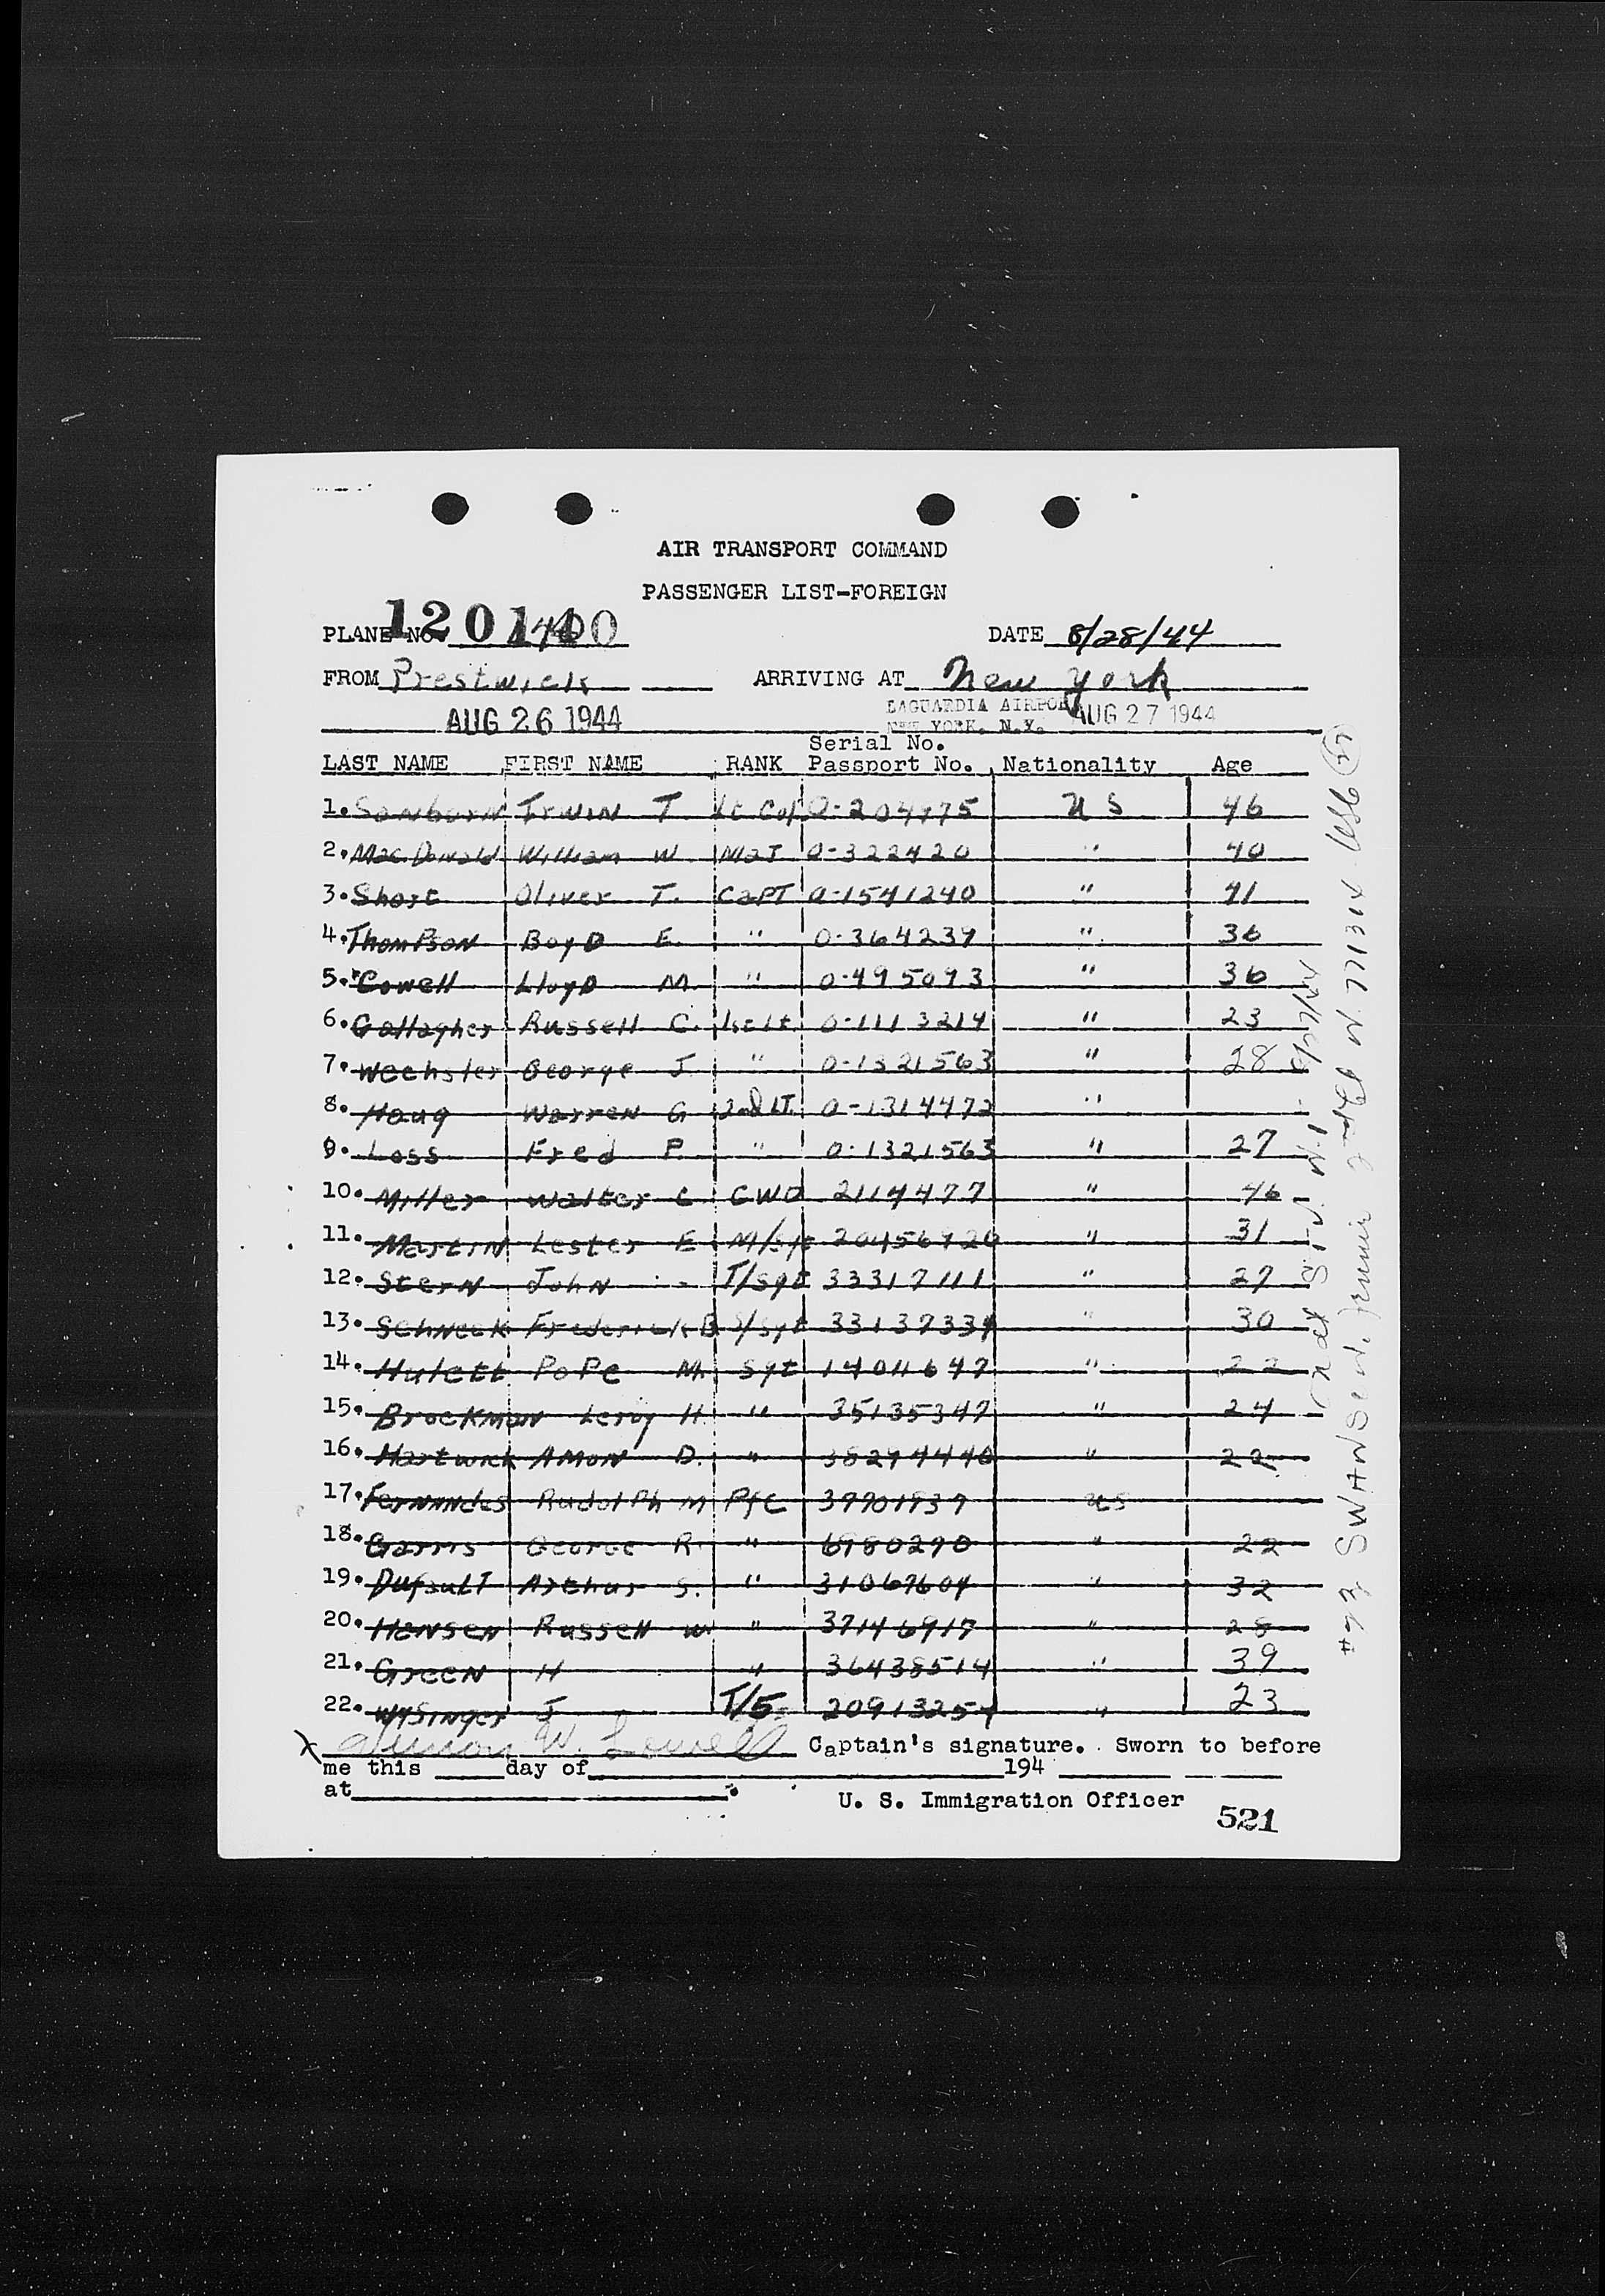 AIR TRANSPORT COMMAND
PASSENGER LIST-FOREIGN
PLANE NO. 12014 DATE 8/28/44
FROM Prestwick ARRIVING AT New York
AUG 26 1944 LAGUARDIA AIRPORT AUG 27 1944
NEW YORK, N.Y.
Serial No.
LAST NAME FIRST NAME RANK Passport No. Nationality Age
1. Sanborn Irwin T Lt Col O-204975 US 46
2. MacDonald William W Maj O-322420 " 40
3. Short Oliver T. CaPT O-1541240 " 41
4. ThomPson BoyD E. " O-364239 " 36
5. Cowell LloyD M. " O-495093 " 36
6. Gallagher Russell C. 1st Lt O-1113214 " 23
7. Wechsler George J " O-1321563 " 28
8. Haug Warren G 2nd LT. O-1314472 "
9. Loss Fred P. " O-1321563 " 27
10. Miller Walter C CWO 2114477 " 46
11. Martin Lester E M/Sgt 20456920 " 31
12. Stern John - T/Sgt 33317111 " 27
13. Schneck Frederick B S/Sgt 33137334 " 30
14. Hulett PoPe M. Sgt 14041647 " 22
15. Brockman Leroy H. " 35135347 " 24
16. Hartwick Amon D. " 38294440 " 22
17. Fernandes RudolPh M Pfc 39701937 US
18. Garns George R. " 6980290 " 22
19. DufaulT Arthur S. " 31067604 " 32
20. Hansen Russell W. " 37146917 " 28
21. Green H " 36438514 " 39
22. Wysinger J T/5 20913254 " 23
X W. Lowell Captain's signature. Sworn to before
me this day of 194
at . U. S. Immigration Officer
521
#23 SWANSEN, N. 771314